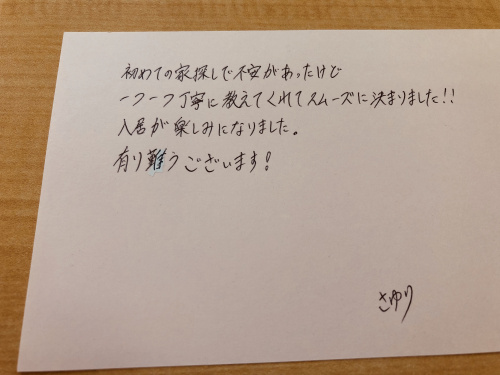 初めての家探しで不安があったけど
一つ一つ丁寧に教えてくれてスムーズに決まりました!!
入居が楽しみになりました。
有り難うございます!
さゆり